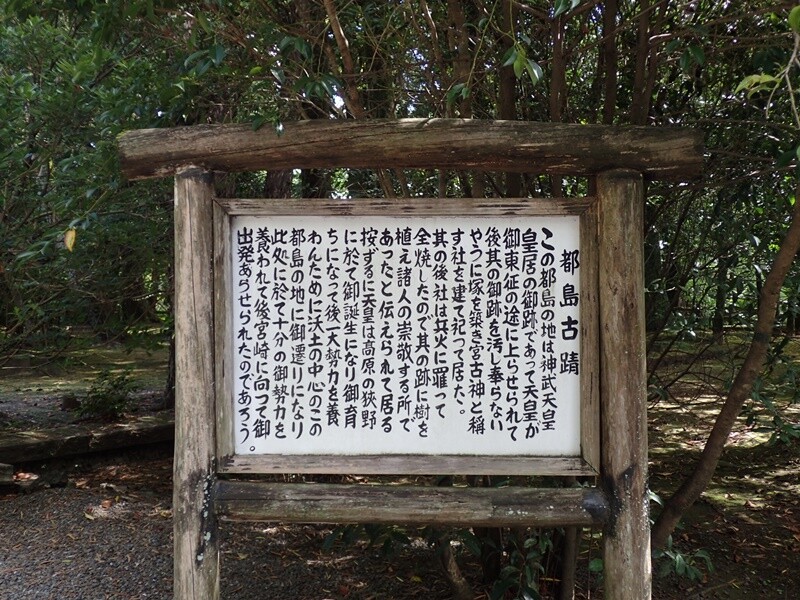 都島古蹟
この都島の地は神武天皇
皇居の御跡であって天皇が
御東征の途に上らせられて
後其の御跡を汚し奉らない
やうに塚を築き宮古神と稱
す社を建て祀つて居た。
其の後社は兵火に罹って
全焼したので其の跡に樹を
植え諸人の崇敬する所で
あったと伝えられて居る
按ずるに天皇は高原の狭野
に於て御誕生になり御育
ちになって後一大勢力を養
わんために沃土の中心のこの
都島の地に御遷りになり
此処に於て十分の御勢力を
養われて後宮崎に向つて御
出発あらせられたのであろう。